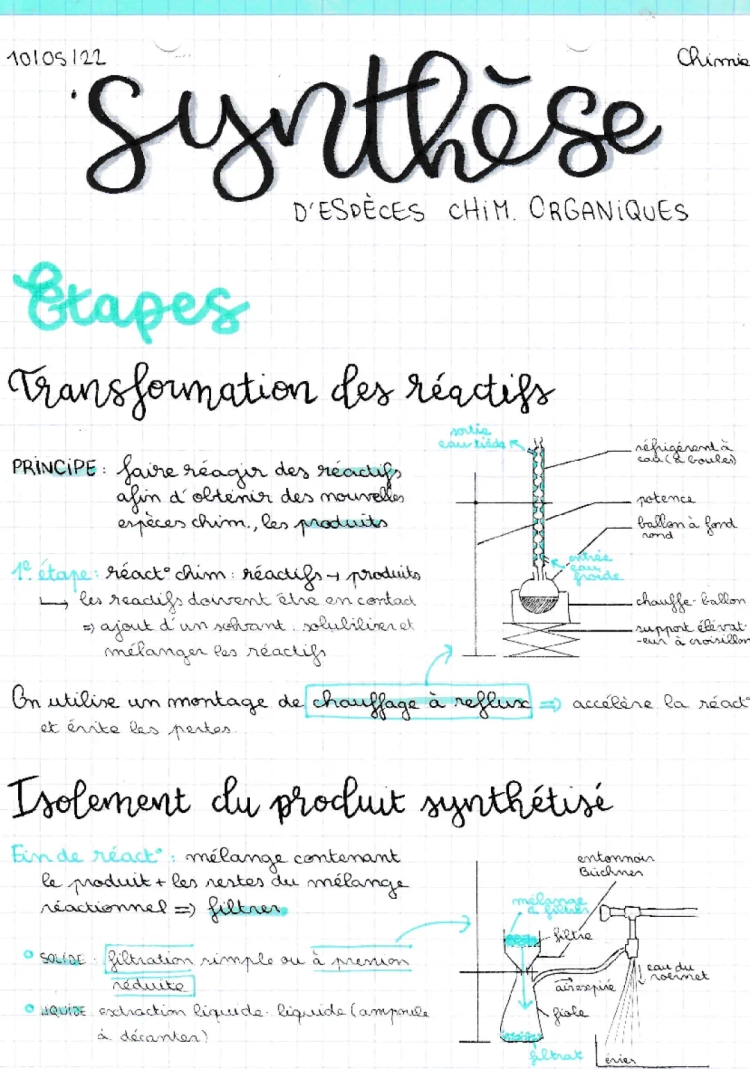 10/05/22
Chimie
Synthèse
D'ESPÈCES CHIM. ORGANIQUES
Etapes
Transformation des réactifs
PRINCIPE : faire réagir des réactifs
afin d'obtenir des nouvelles
espèces chim., les produits
1e étape : réact° chim : réactifs → produits
↳ les reactifs doivent être en contact
⇒ ajout d'un solvant : solubiliser et
mélanger les réactifs
sortie
eau tiède
réfrigérant à
eau (à boules)
potence
ballon à fond
rond
entrée
eau
froide
chauffe-ballon
support élévat-
-eur à croisillon
On utilise un montage de chauffage à reflux ⇒ accélère la réact°
et évite les pertes.
Isolement du produit synthétisé
Fin de réact° : mélange contenant
le produit + les restes du mélange
réactionnel ⇒ filtrer
SOLIDE : filtration simple ou à pression
réduite
LIQUIDE : extraction liquide-liquide (ampoule
à décanter)
entonnoir
Büchner
mélange
à filtrer
filtre
air aspiré
eau du
robinet
fiole
filtrat
évier